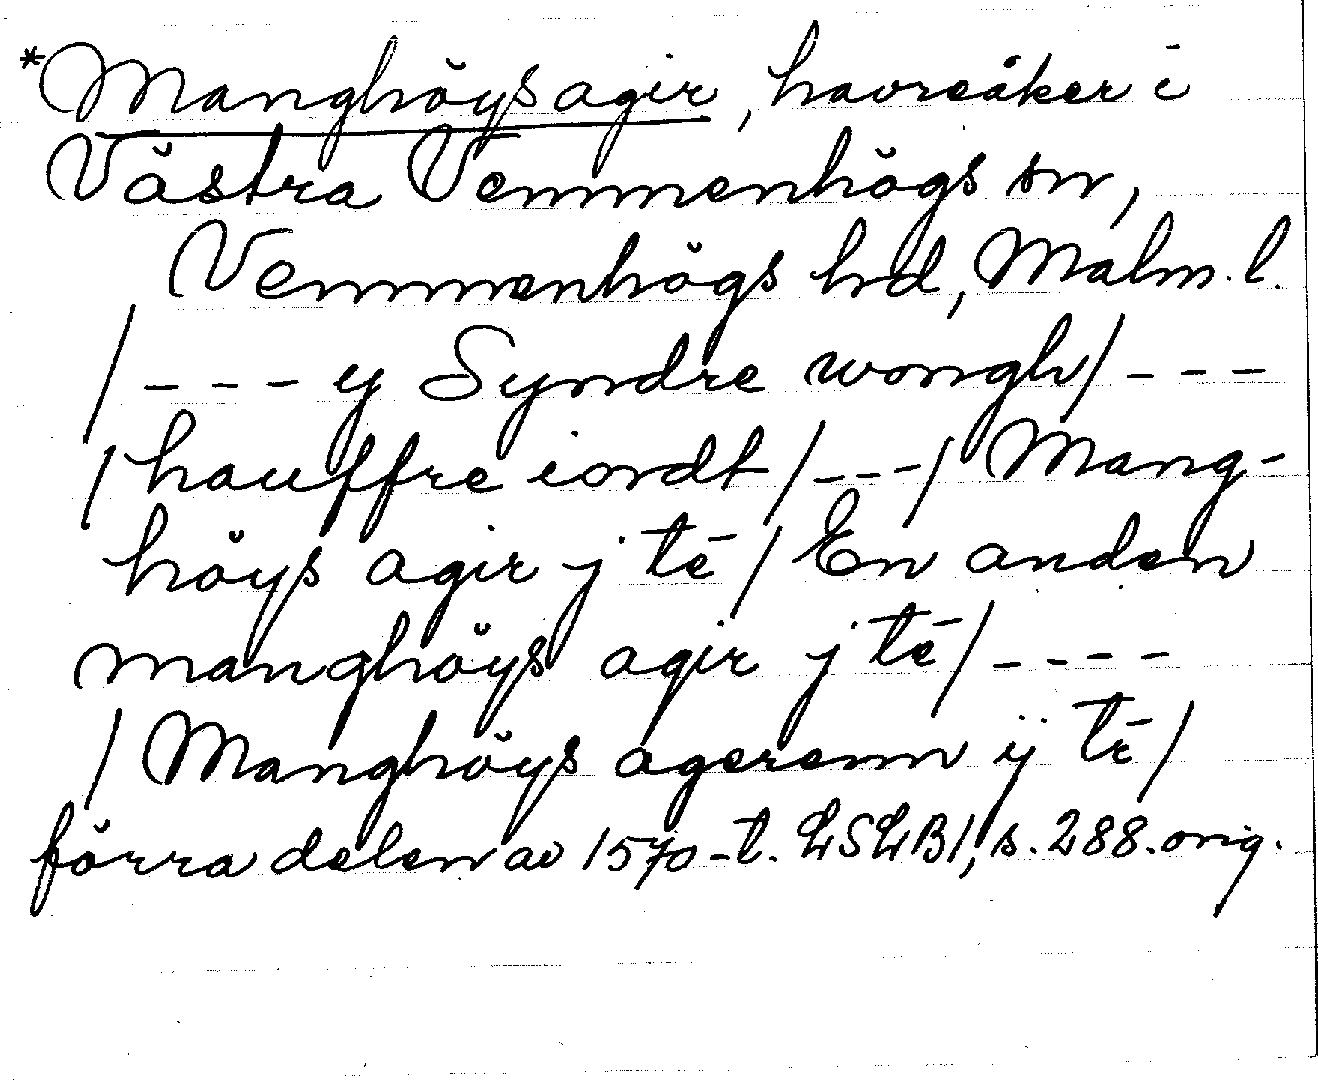 *Manghöys agir, havreåker i
Västra Vemmenhögs sn,
Vemmenhögs hd, Malm. l.
/---y Syndre wongh/---
/hauffre iordt/---/Mang-
höys agir j tē/En anden
manghöys agir j tē/----
/Manghöys agerenn ÿ tē/
förra delen av 1570-t. LSLB1, s. 288. orig.